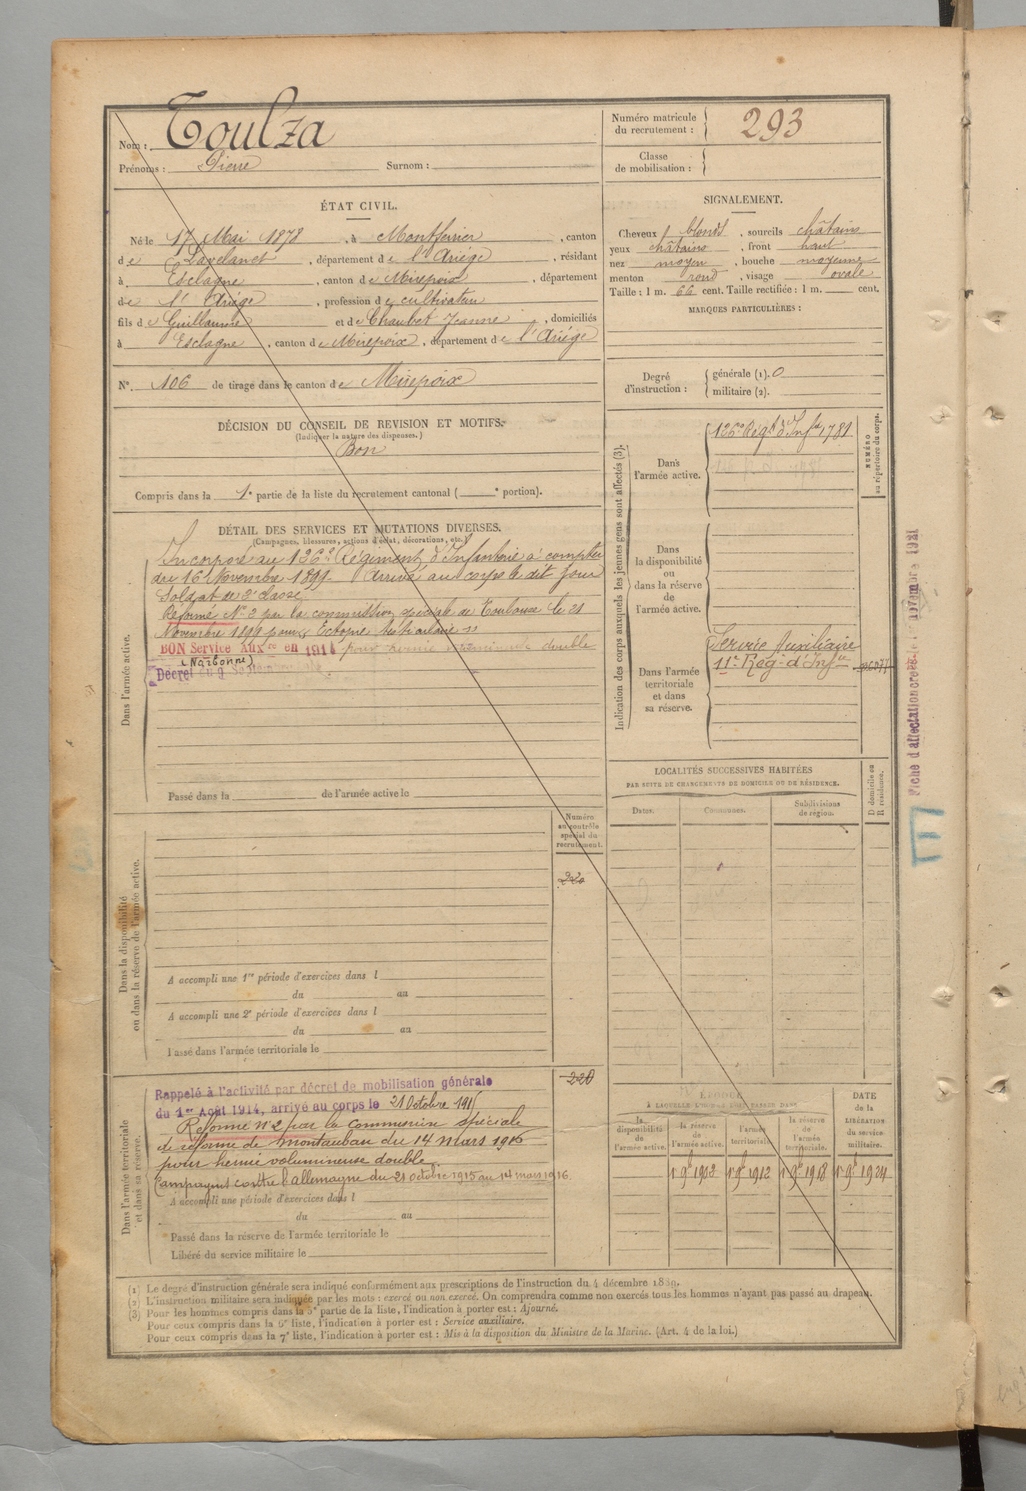 Nom : Toulza
Prénoms : Pierre Surnom :
Numéro matricule du recrutement : 293
Classe de mobilisation :
ÉTAT CIVIL.
Né le 17 Mai 1878, à Montferrier, canton
de Lavelanet, département de l'Ariège, résidant
à Esclagne, canton de Mirepoix, département
de l'Ariège, profession de cultivateur
fils de Guillaume et de Chaubet Jeanne, domiciliés
à Esclagne, canton de Mirepoix, département de l'Ariège
N° 106 de tirage dans le canton de Mirepoix
SIGNALEMENT.
Cheveux blonds, sourcils châtains
yeux châtains, front haut
nez moyen, bouche moyenne
menton rond, visage ovale
Taille : 1 m. 66 cent. Taille rectifiée : 1 m. cent.
MARQUES PARTICULIÈRES :
Degré d'instruction : générale (1). 0
militaire (2).
DÉCISION DU CONSEIL DE REVISION ET MOTIFS.
(Indiquer la nature des dispenses.)
Bon
Compris dans la 1e partie de la liste du recrutement cantonal ( e portion).
DÉTAIL DES SERVICES ET MUTATIONS DIVERSES.
(Campagnes, blessures, actions d'éclat, décorations, etc.)
Dans l'armée active.
Incorporé au 126e Régiment d'Infanterie à compter
du 16 Novembre 1899. Arrivé au corps le dit jour
Soldat de 2e classe
Réformé N° 2 par la commission spéciale de Toulouse le 21
Novembre 1899 pour Ectopie testiculaire
BON Service Auxre en 1914 pour hernie double
(Narbonne)
Décret du 9 Septembre
Passé dans la de l'armée active le
Indication des corps auxquels les jeunes gens sont affectés (3).
NUMÉRO au répertoire du corps.
Dans l'armée active.
126e Régt d'Infie 1781
Dans la disponibilité ou dans la réserve de l'armée active.
Dans l'armée territoriale et dans sa réserve.
Service Auxiliaire
11e Régt d'Infie
LOCALITÉS SUCCESSIVES HABITÉES
PAR SUITE DE CHANGEMENTS DE DOMICILE OU DE RÉSIDENCE.
Dates. Communes. Subdivisions de région. D domicile ou R résidence.
Fiche d'affectation créée le novembre 1921
Dans la disponibilité ou dans la réserve de l'armée active.
Numéro au contrôle spécial du recrutement.
220
A accompli une 1re période d'exercices dans l
du au
A accompli une 2e période d'exercices dans l
du au
Passé dans l'armée territoriale le
Dans l'armée territoriale et dans sa réserve.
220
Rappelé à l'activité par décret de mobilisation générale
du 1er Août 1914, arrivé au corps le 21 Octobre 1915
Réformé n° 2 par la commission spéciale
de réforme de Montauban du 14 mars 1916
pour hernie volumineuse double
Campagne contre l'allemagne du 21 octobre 1915 au 14 mars 1916.
A accompli une période d'exercices dans l
du au
Passé dans la réserve de l'armée territoriale le
Libéré du service militaire le
ÉPOQUE
À LAQUELLE L'HOMME DOIT PASSER DANS
la disponibilité de l'armée active. la réserve de l'armée active. l'armée territoriale. la réserve de l'armée territoriale.
DATE de la LIBÉRATION du service militaire.
1 9bre 1902 1 9bre 1912 1 9bre 1918 1 9bre 1924
(1) Le degré d'instruction générale sera indiqué conformément aux prescriptions de l'instruction du 4 décembre 1889.
(2) L'instruction militaire sera indiquée par les mots : exercé ou non exercé. On comprendra comme non exercés tous les hommes n'ayant pas passé au drapeau.
(3) Pour les hommes compris dans la 5e partie de la liste, l'indication à porter est : Ajourné.
Pour ceux compris dans la 6e liste, l'indication à porter est : Service auxiliaire.
Pour ceux compris dans la 7e liste, l'indication à porter est : Mis à la disposition du Ministre de la Marine. (Art. 4 de la loi.)